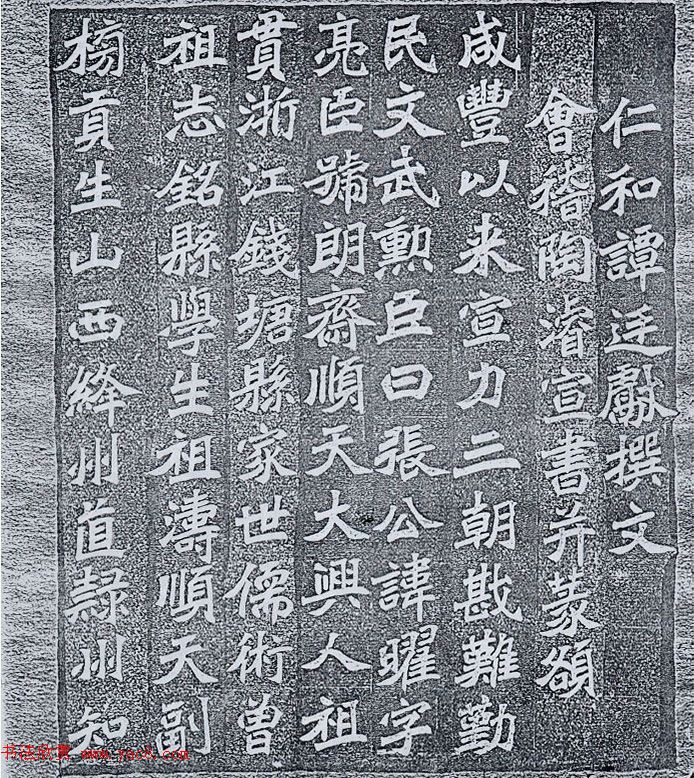 仁和譚廷獻撰文
會稽陶濬宣書并篆額
咸豐以来宣力三朝戡難勤
民文武勳臣曰張公諱曜字
亮臣號朗齋順天大興人祖
貫浙江錢塘縣家世儒術曾
祖志銘縣學生祖濤順天副
榜貢生山西絳州直隸州知
书法欣赏 www.yac8.com